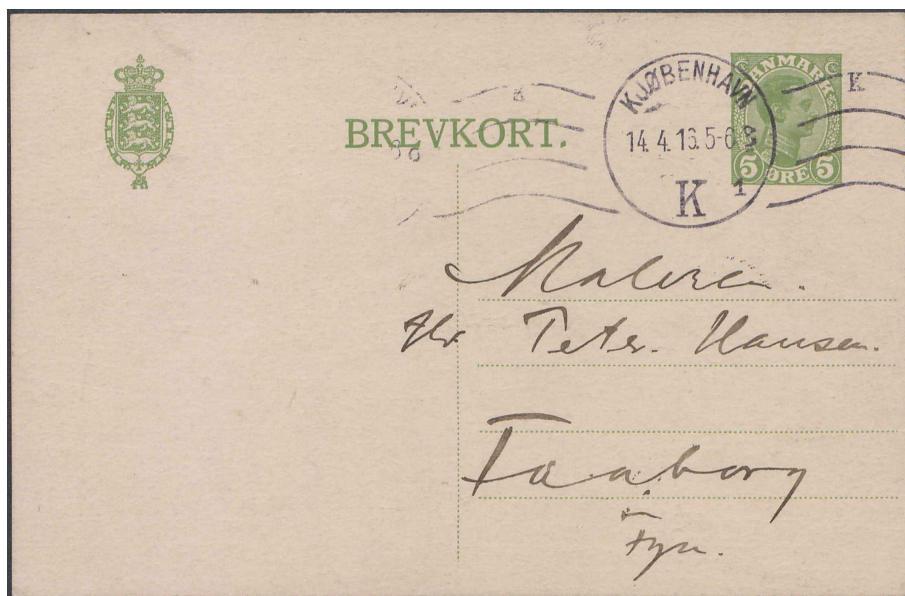 BREVKORT.
KJØBENHAVN
14. 4. 16. 5-6 E
K 1
K
DANMARK
5 ØRE 5
Maleren.
Hr Peter Hansen.
Faaborg
Fyn.